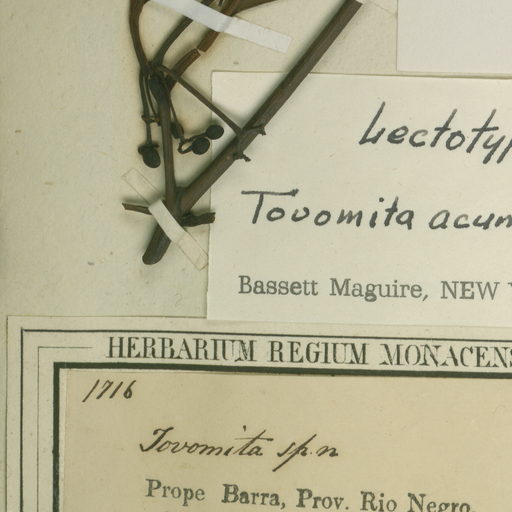 Lectotyp
Tovomita acum
Bassett Maguire, NEW Y
HERBARIUM REGIUM MONACENS
1716
Tovomita sp. n
Prope Barra, Prov. Rio Negro.